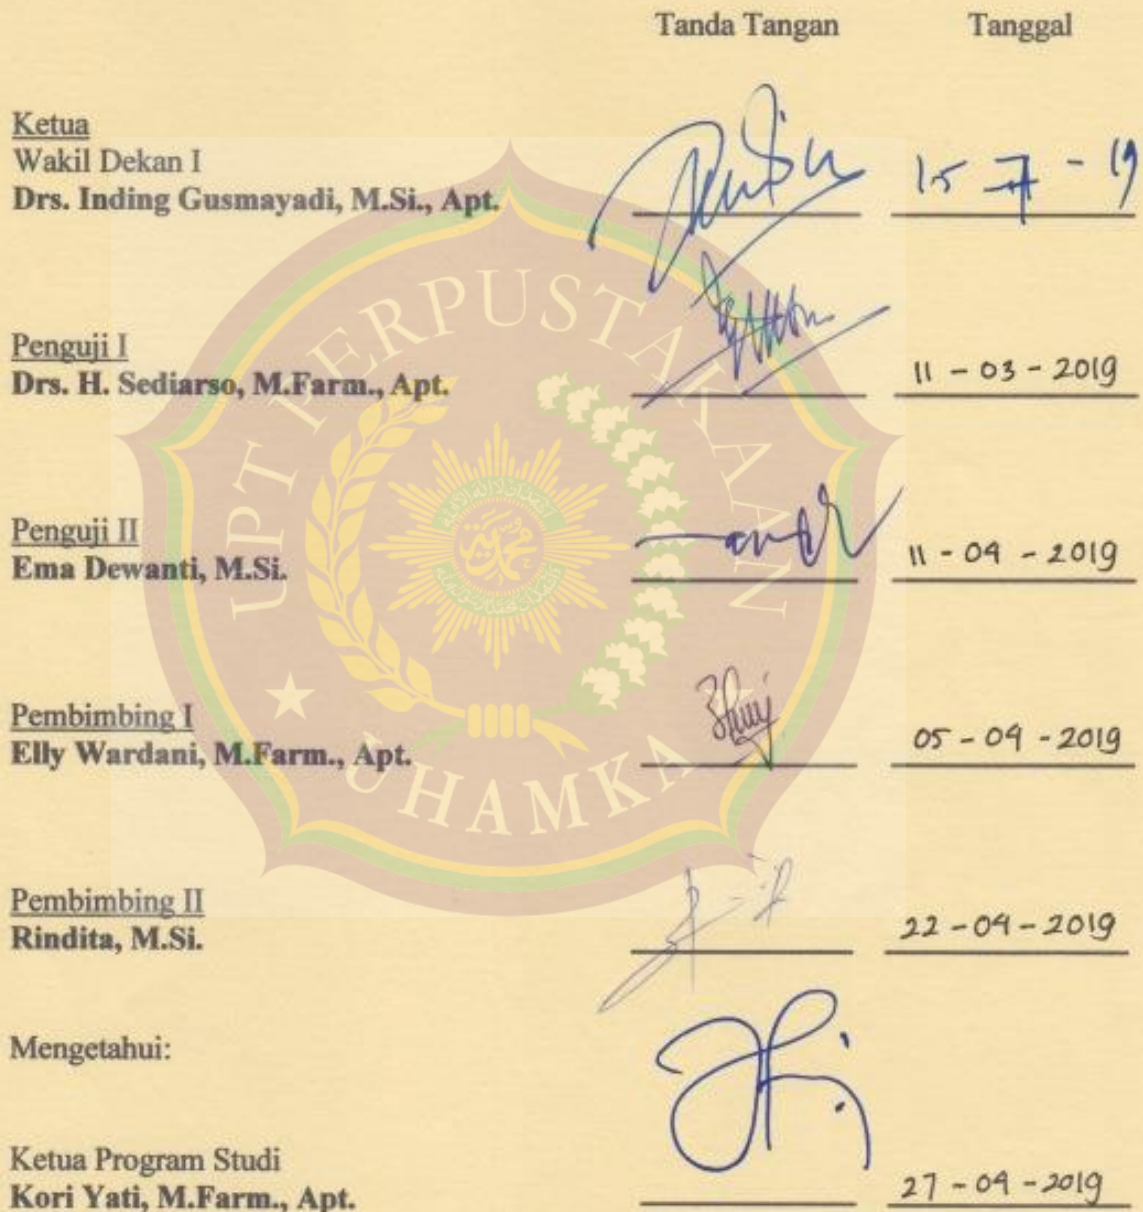 Tanda Tangan Tanggal
Ketua
Wakil Dekan I
Drs. Inding Gusmayadi, M.Si., Apt.
15 - 7 - 19
Penguji I
Drs. H. Sediarso, M.Farm., Apt.
11 - 03 - 2019
Penguji II
Ema Dewanti, M.Si.
11 - 04 - 2019
Pembimbing I
Elly Wardani, M.Farm., Apt.
05 - 04 - 2019
Pembimbing II
Rindita, M.Si.
22 - 04 - 2019
Mengetahui:
Ketua Program Studi
Kori Yati, M.Farm., Apt.
27 - 04 - 2019
UPT PERPUSTAKAAN
UHAMKA